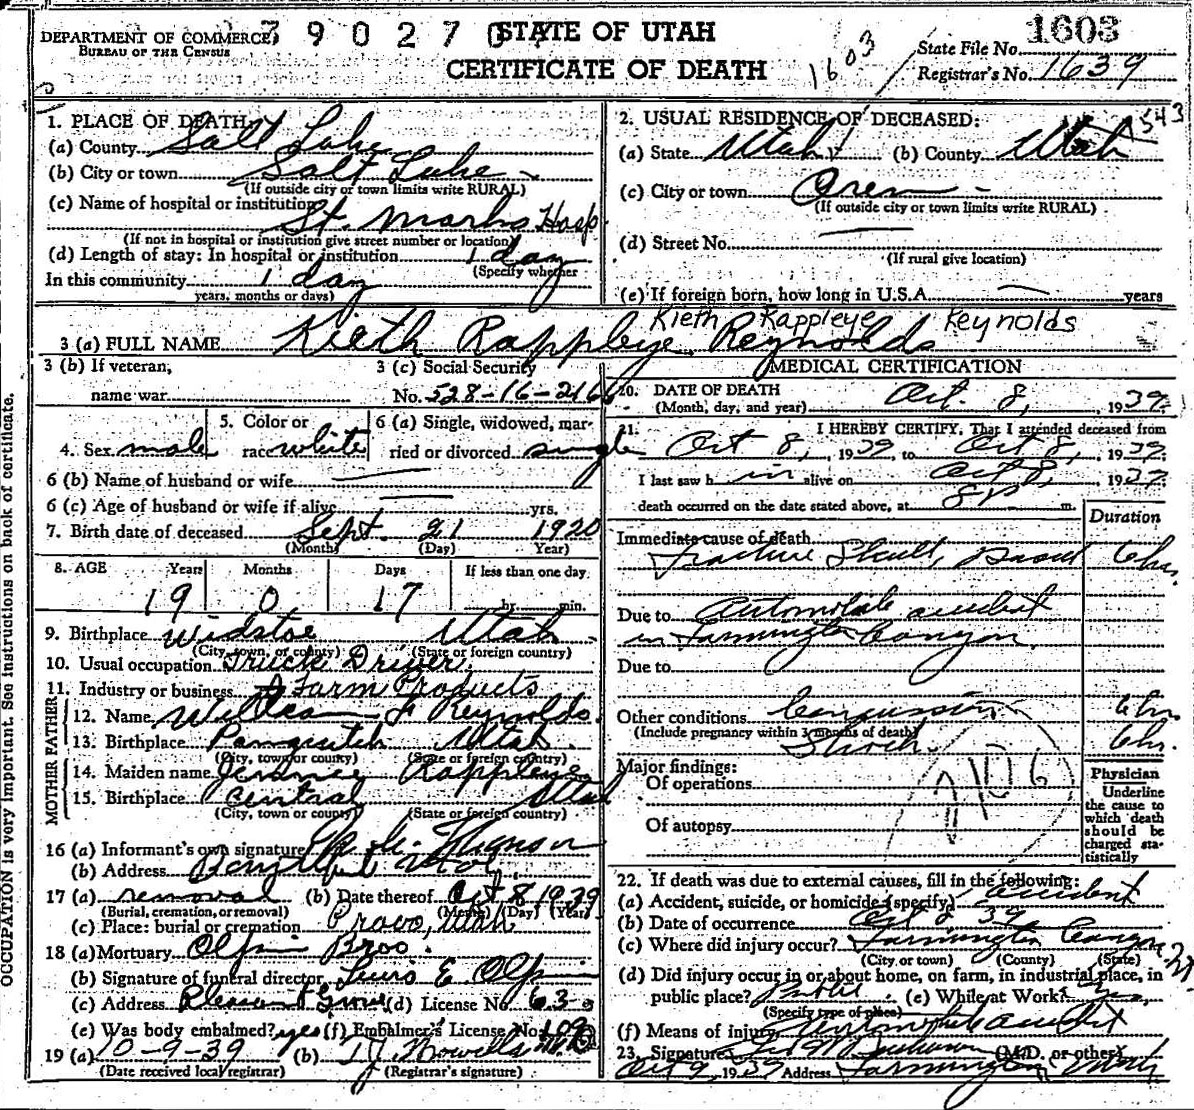 DEPARTMENT OF COMMERCE
BUREAU OF THE CENSUS
STATE OF UTAH
CERTIFICATE OF DEATH
1603
1603
State File No.
Registrar's No. 1639
1. PLACE OF DEATH:
(a) County Salt Lake
(b) City or town Salt Lake
(If outside city or town limits write RURAL)
(c) Name of hospital or institution
St. Marks Hosp
(If not in hospital or institution give street number or location)
(d) Length of stay: In hospital or institution 1 day
(Specify whether
In this community 1 day
years, months or days)
2. USUAL RESIDENCE OF DECEASED:
543
(a) State Utah (b) County Utah
(c) City or town Orem
(If outside city or town limits write RURAL)
(d) Street No.
(If rural give location)
(e) If foreign born, how long in U.S.A. years
Kieth Rappleye Reynolds
3 (a) FULL NAME Kieth Rappleye Reynolds
3 (b) If veteran,
name war
3 (c) Social Security
No. 528-16-2166
4. Sex male
5. Color or
race white
6 (a) Single, widowed, mar-
ried or divorced single
6 (b) Name of husband or wife
6 (c) Age of husband or wife if alive yrs.
7. Birth date of deceased Sept. 21 1920
(Month) (Day) Year)
8. AGE Years Months Days If less than one day
19 0 17 hr. min.
9. Birthplace Widstoe Utah
(City, town, or county) (State or foreign country)
10. Usual occupation Truck Driver
11. Industry or business Farm Products
FATHER
12. Name William F Reynolds
13. Birthplace Panguitch Utah
(City, town or county) (State or foreign country)
MOTHER
14. Maiden name Jennie Rappleye
15. Birthplace Central Utah
(City, town or county) (State or foreign country)
16 (a) Informant's own signature
(b) Address Bountiful Utah
17 (a) removal (b) Date thereof Oct 8 1939
(Burial, cremation, or removal) (Month) (Day) (Year)
(c) Place: burial or cremation Provo, Utah
18 (a) Mortuary Olpin Bros.
(b) Signature of funeral director Lewis E. Olpin
(c) Address Pleasant Grove (d) License No. 63
(e) Was body embalmed? yes (f) Embalmer's License No.
19 (a) 10-9-39 (b)
(Date received local registrar) (Registrar's signature)
MEDICAL CERTIFICATION
20. DATE OF DEATH
(Month, day, and year) Oct. 8, 1939
21. I HEREBY CERTIFY, That I attended deceased from
Oct 8, 1939, to Oct 8, 1939
I last saw h im alive on Oct 8, 1939
death occurred on the date stated above, at 8P m.
Duration
Immediate cause of death
Fracture Skull, 6 hrs.
Due to Automobile accident
in Farmington Canyon
Due to
Other conditions Concussion 6 hrs
(Include pregnancy within 3 months of death)
Shock. 6 hr.
Major findings:
Of operations
Of autopsy
Physician
Underline
the cause to
which death
should be
charged sta-
tistically
22. If death was due to external causes, fill in the following:
(a) Accident, suicide, or homicide (specify) accident
(b) Date of occurrence Oct 8 39
(c) Where did injury occur? Farmington Canyon
(City or town) (County) (State)
(d) Did injury occur in or about home, on farm, in industrial place, in
public place? Public (e) While at Work?
(Specify type of place)
(f) Means of injury Automobile accident
23. Signature (M.D. or other)
Oct 9, 1939 Address Farmington Utah
OCCUPATION is very important. See instructions on back of certificate.